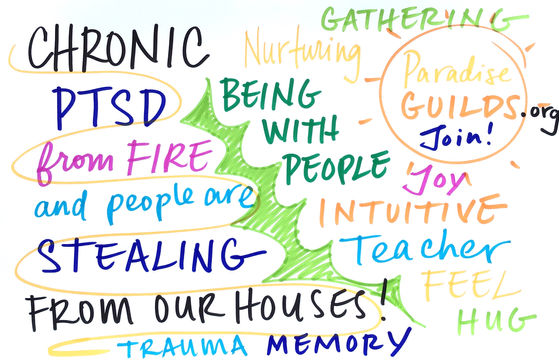 CHRONIC
PTSD
from FIRE
and people are
STEALING
FROM OUR HOUSES!
TRAUMA MEMORY
GATHERYNG
Nurturing
BEING
WITH
PEOPLE
Paradise
GUILDS.org
Join!
Joy
INTUITIVE
Teacher
FEEL
HUG